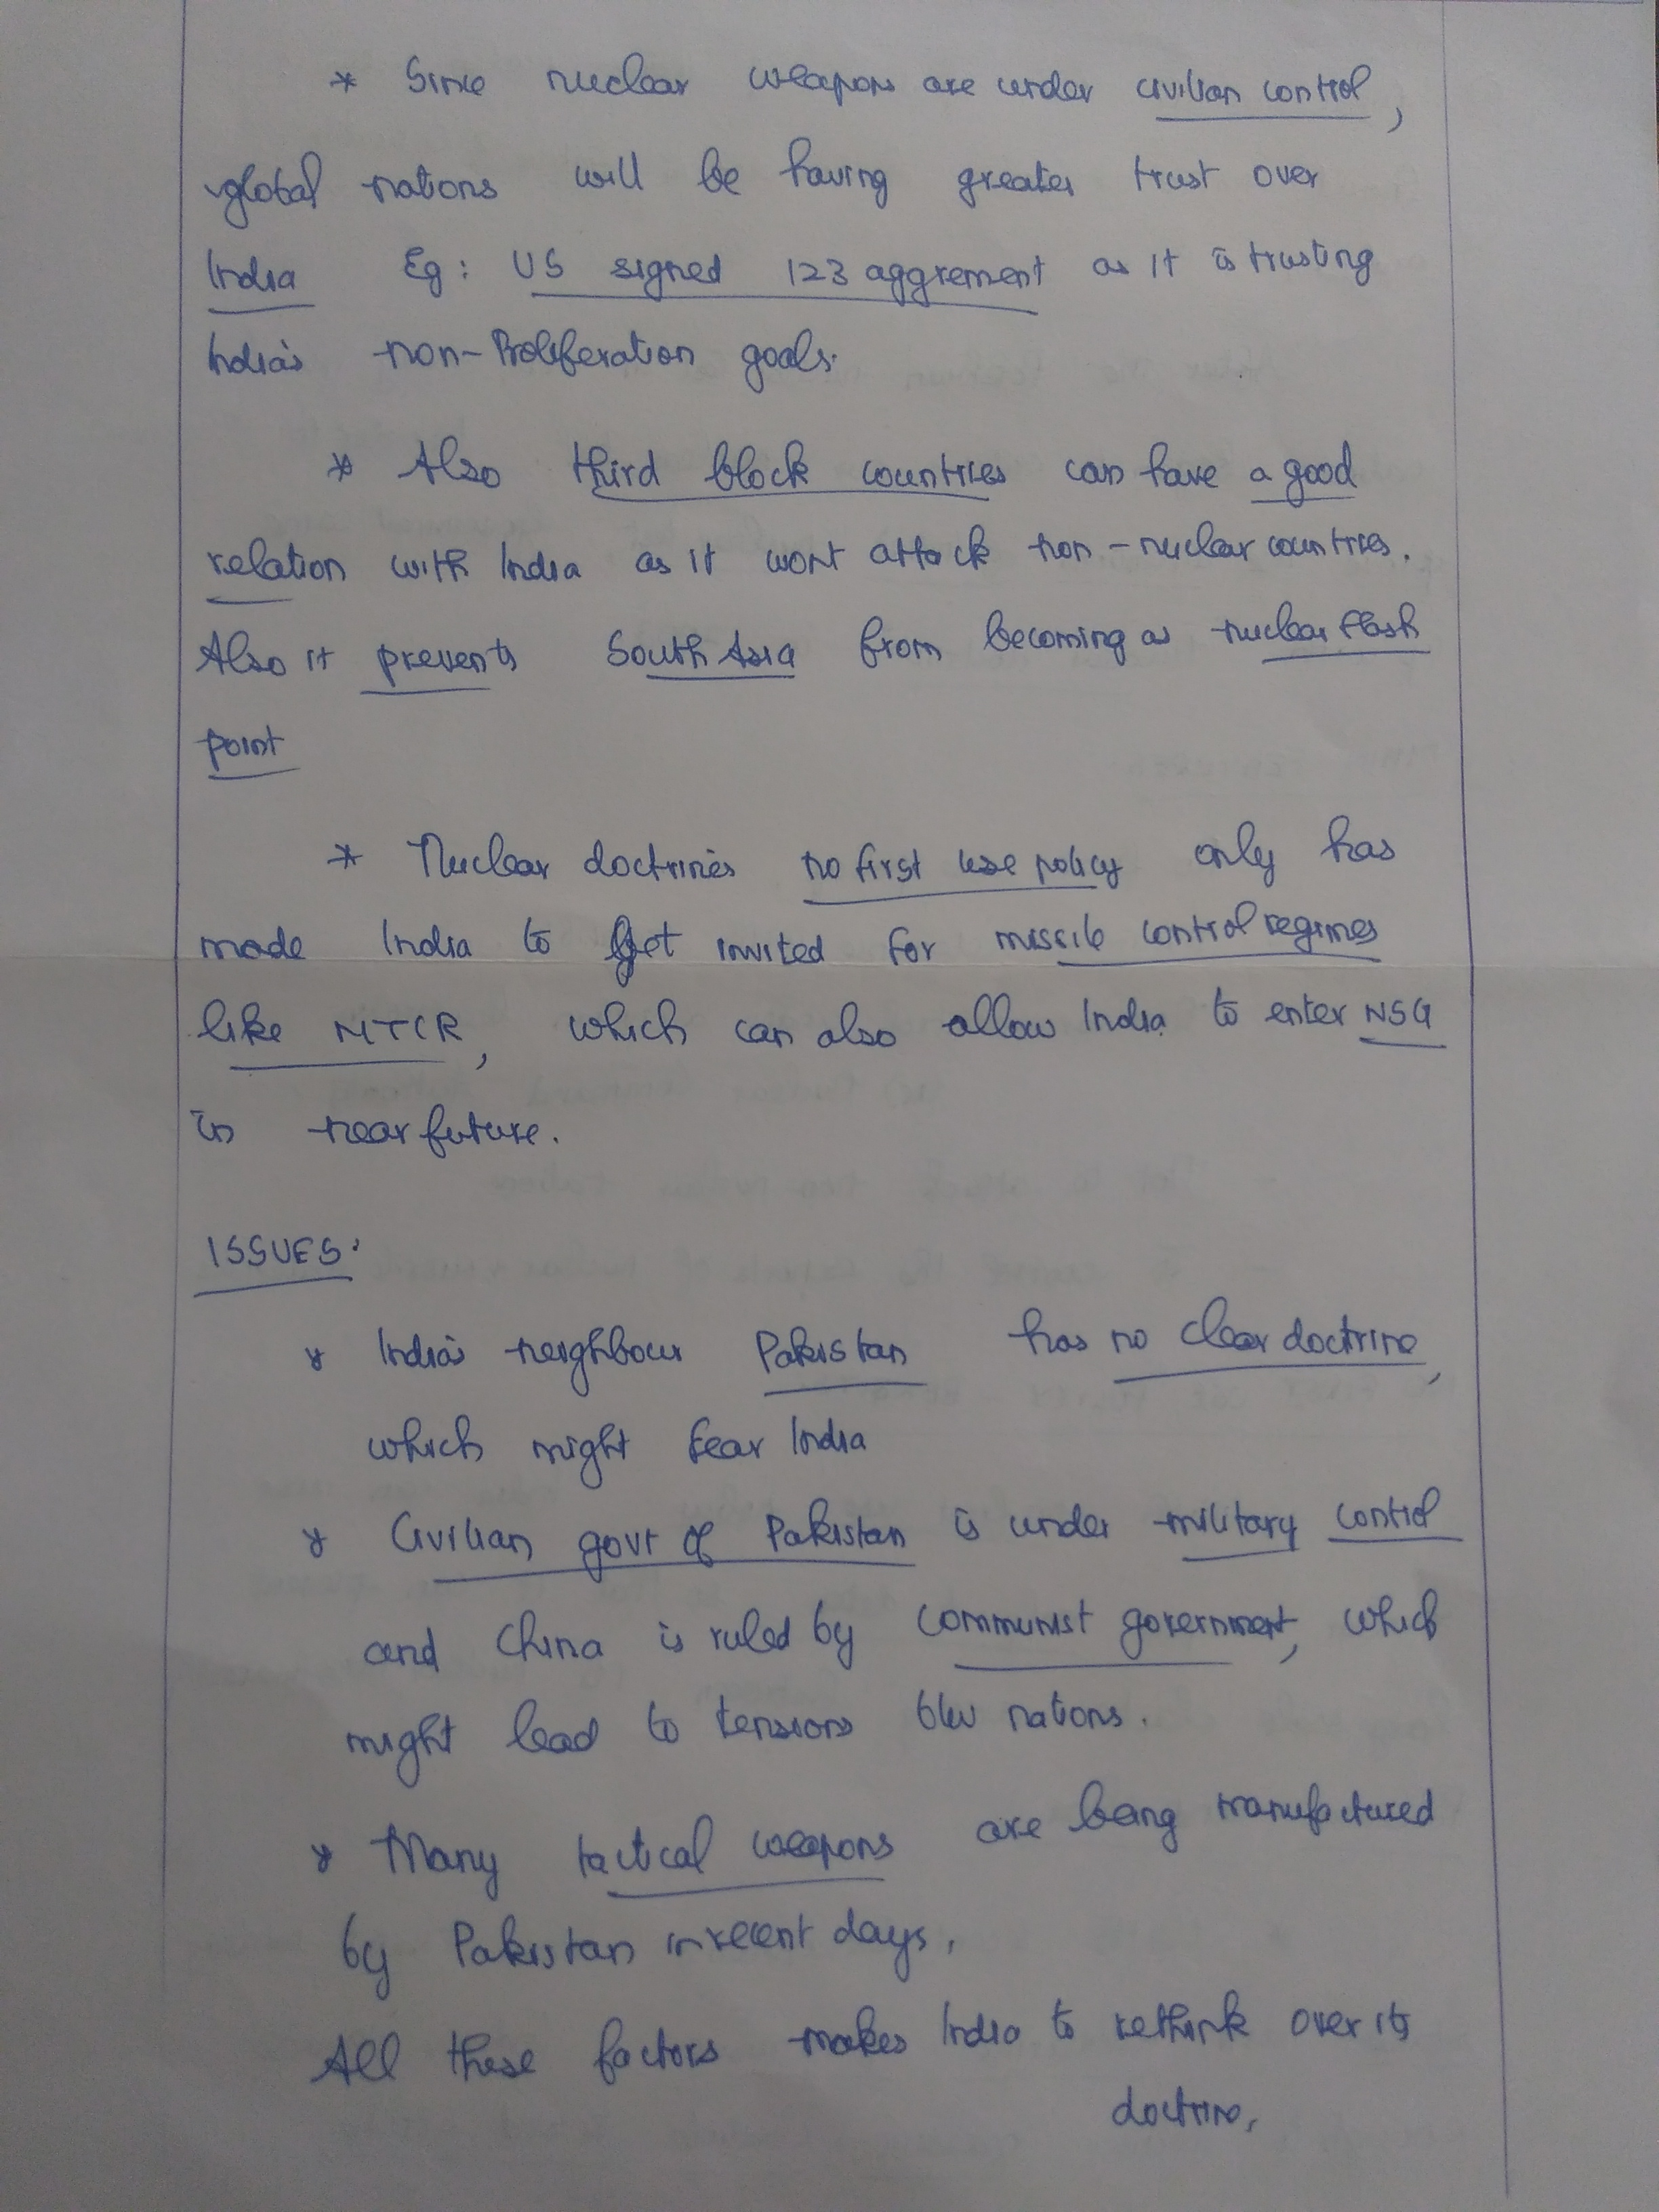 * Since nuclear weapons are under civilian control,
global nations will be having greater trust over
India Eg: US signed 123 aggrement as it is trusting
India's non-Proliferation goals.
* Also third block countries can have a good
relation with India as it wont attack non-nuclear countries.
Also it prevents South Asia from becoming as nuclear flash
point
* Nuclear doctrines no first use policy only has
made India to get invited for missile control regimes
like MTCR, which can also allow India to enter NSG
in near future.
ISSUES:
* India's neighbour Pakistan has no clear doctrine,
which might fear India
* Civilian govt of Pakistan is under military control
and China is ruled by communist government, which
might lead to tensions b/w nations.
* Many tactical weapons are being manufactured
by Pakistan in recent days.
All these factors makes India to rethink over its
doctrine.